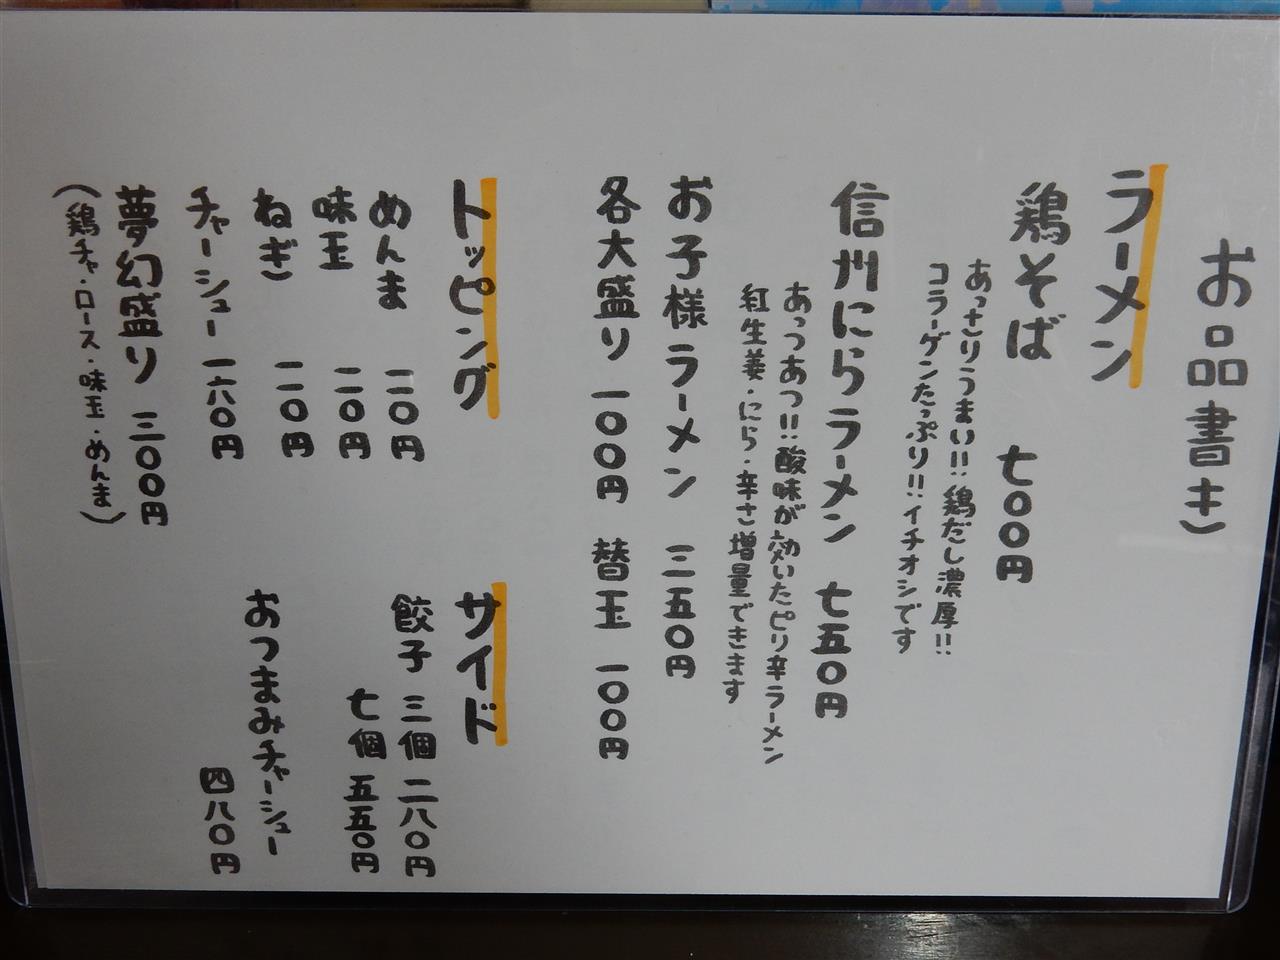 お品書き
ラーメン
鶏そば 七〇〇円
あっさりうまい!!鶏だし濃厚!!
コラーゲンたっぷり!!イチオシです
信州にらラーメン 七五〇円
あっつあつ!!酸味が効いたピリ辛ラーメン
紅生姜・にら・辛さ増量できます
お子様ラーメン 三五〇円
各大盛り 一〇〇円 替玉 一〇〇円
トッピング
めんま 二〇円
味玉 一一〇円
ねぎ 一一〇円
チャーシュー 一六〇円
夢幻盛り 三〇〇円
(鶏チャ・ロース・味玉・めんま)
サイド
餃子 三個 二八〇円
七個 五五〇円
おつまみチャーシュー
四八〇円